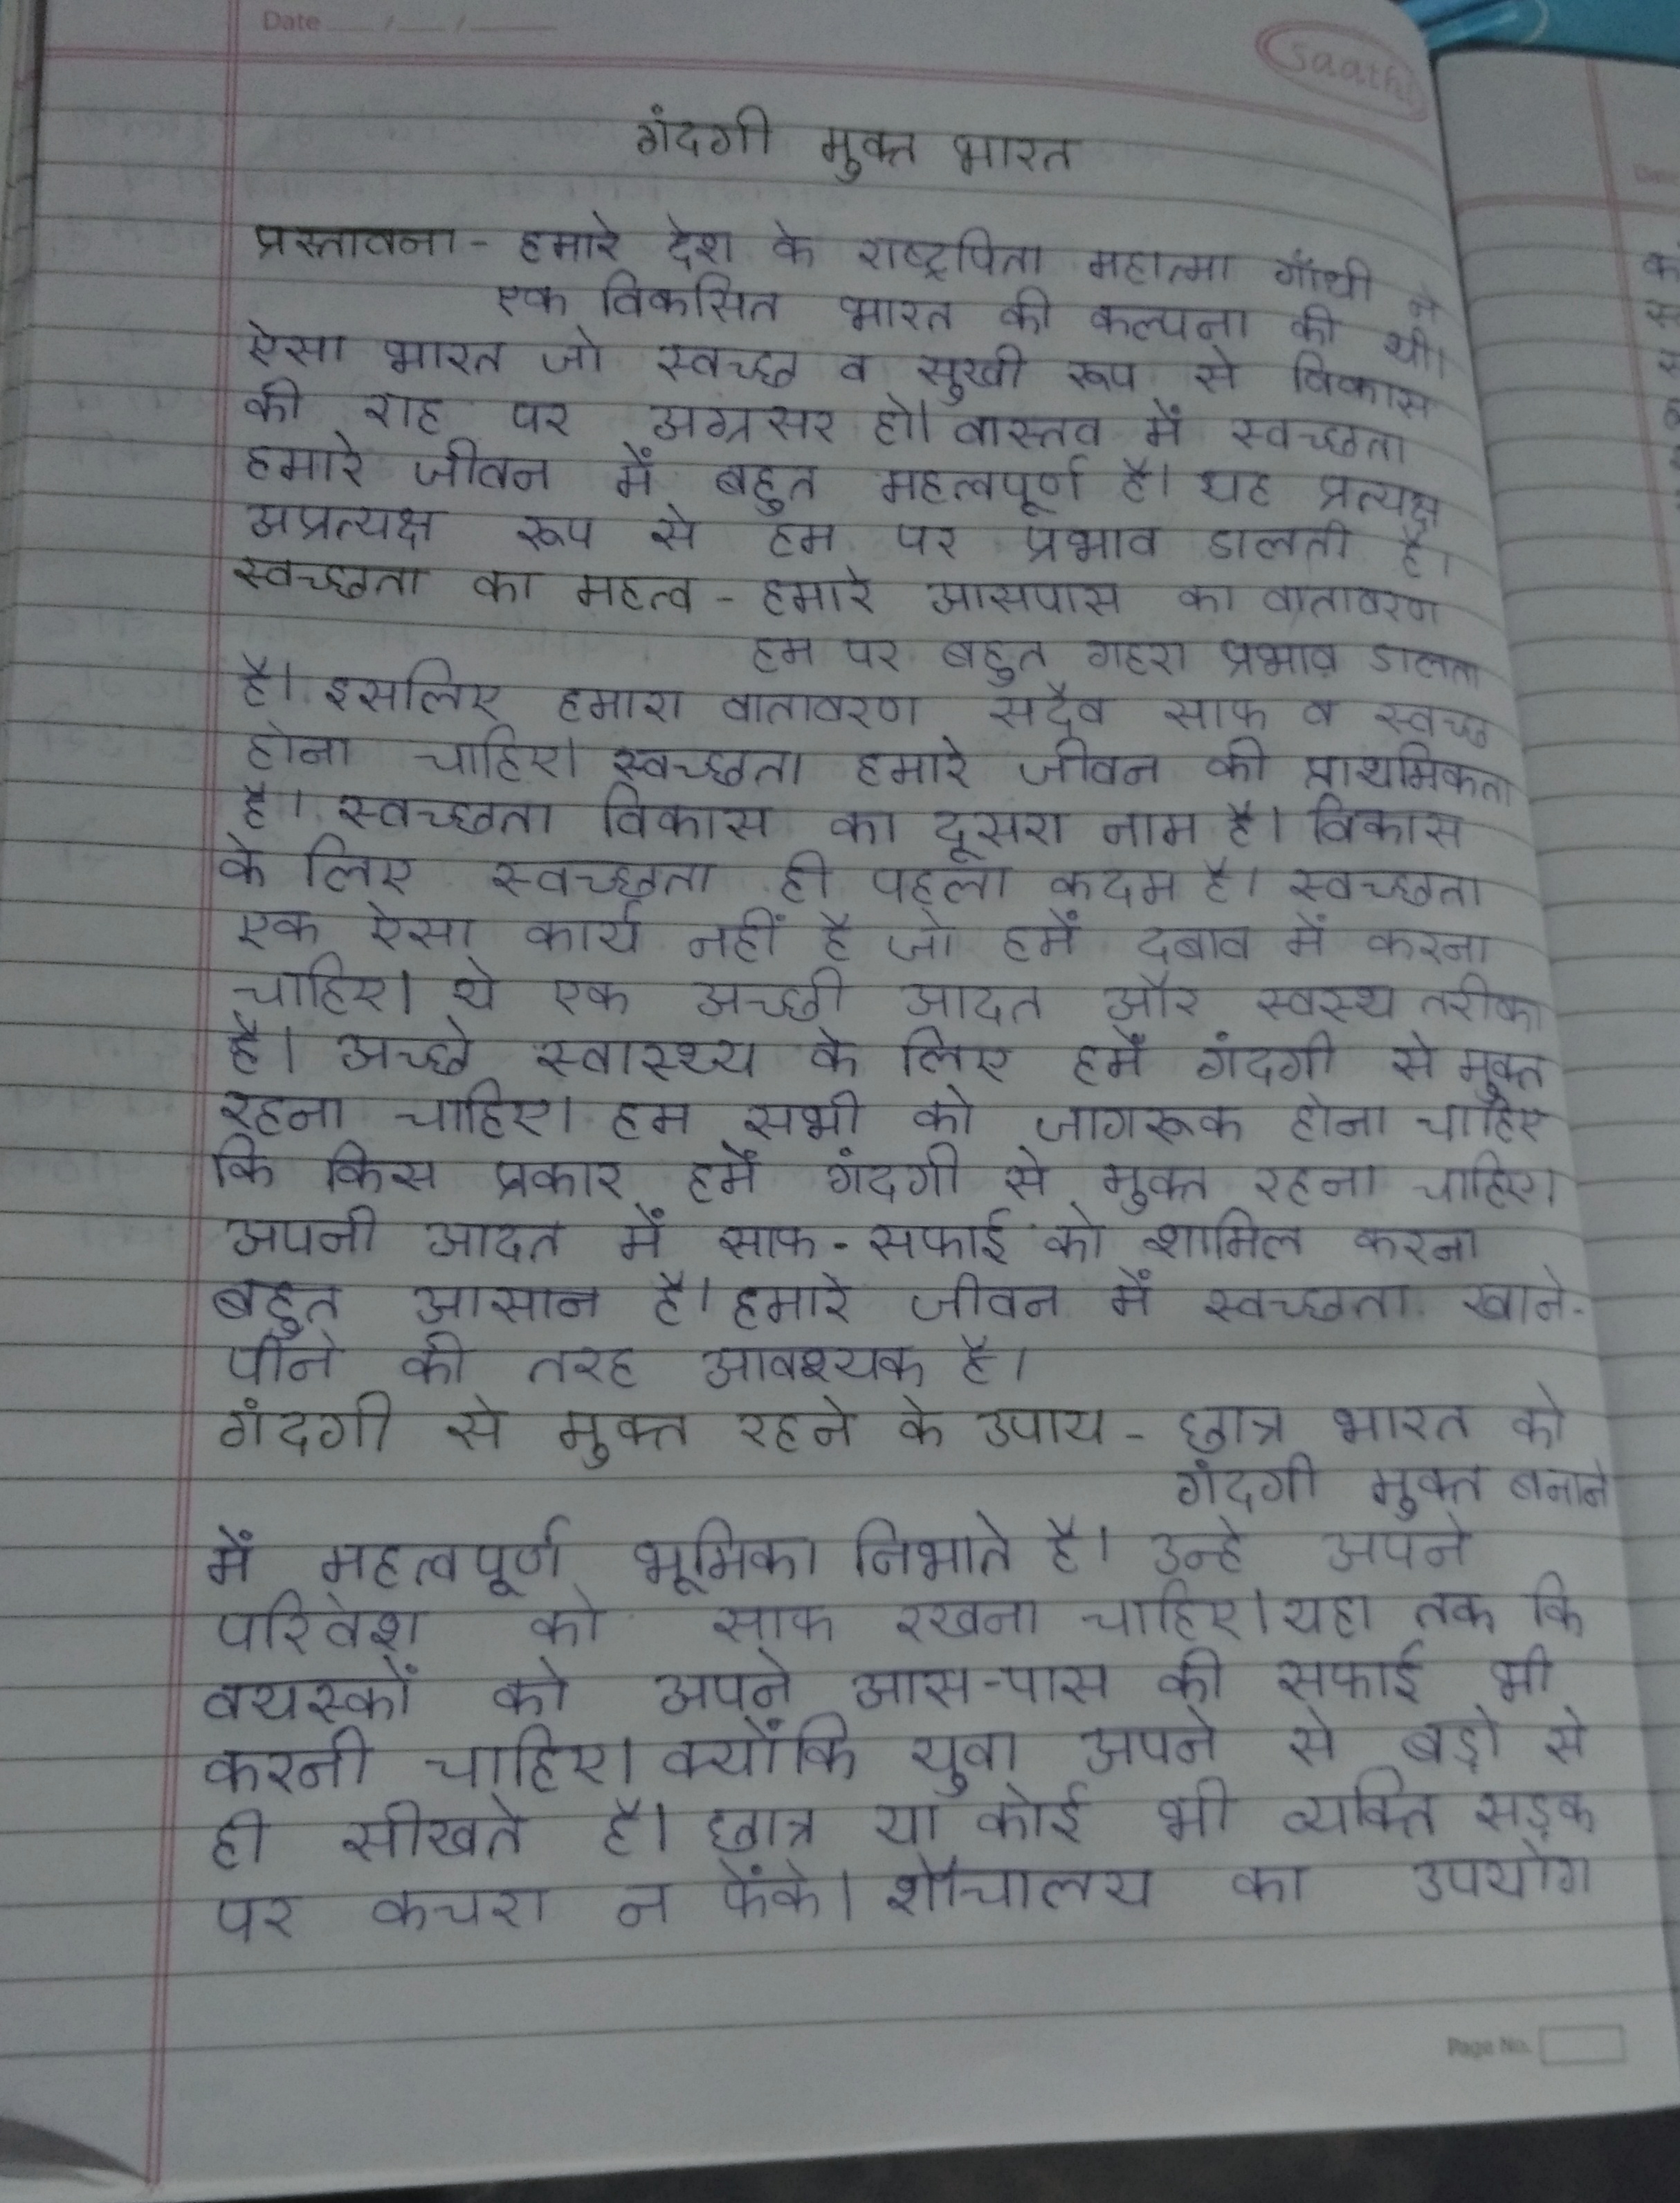 Date __/__/____
Saathi
गंदगी मुक्त भारत
प्रस्तावना - हमारे देश के राष्ट्रपिता महात्मा गाँधी ने
एक विकसित भारत की कल्पना की थी।
ऐसा भारत जो स्वच्छ व सुखी रूप से विकास
की राह पर अग्रसर हो। वास्तव में स्वच्छता
हमारे जीवन में बहुत महत्वपूर्ण है। यह प्रत्यक्ष
अप्रत्यक्ष रूप से हम पर प्रभाव डालती है।
स्वच्छता का महत्व - हमारे आसपास का वातावरण
हम पर बहुत गहरा प्रभाव डालता
है। इसलिए हमारा वातावरण सदैव साफ व स्वच्छ
होना चाहिए। स्वच्छता हमारे जीवन की प्राथमिकता
है। स्वच्छता विकास का दूसरा नाम है। विकास
के लिए स्वच्छता ही पहला कदम है। स्वच्छता
एक ऐसा कार्य नहीं है जो हमें दबाव में करना
चाहिए। ये एक अच्छी आदत और स्वस्थ तरीका
है। अच्छे स्वास्थ्य के लिए हमें गंदगी से मुक्त
रहना चाहिए। हम सभी को जागरूक होना चाहिए
कि किस प्रकार हमें गंदगी से मुक्त रहना चाहिए।
अपनी आदत में साफ-सफाई को शामिल करना
बहुत आसान है। हमारे जीवन में स्वच्छता खाने-
पीने की तरह आवश्यक है।
गंदगी से मुक्त रहने के उपाय - छात्र भारत को
गंदगी मुक्त बनाने
में महत्वपूर्ण भूमिका निभाते है। उन्हे अपने
परिवेश को साफ रखना चाहिए। यहा तक कि
वयस्कों को अपने आस-पास की सफाई भी
करनी चाहिए। क्योंकि युवा अपने से बड़ो से
ही सीखते है। छात्र या कोई भी व्यक्ति सड़क
पर कचरा न फेंके। शौचालय का उपयोग
Page No.